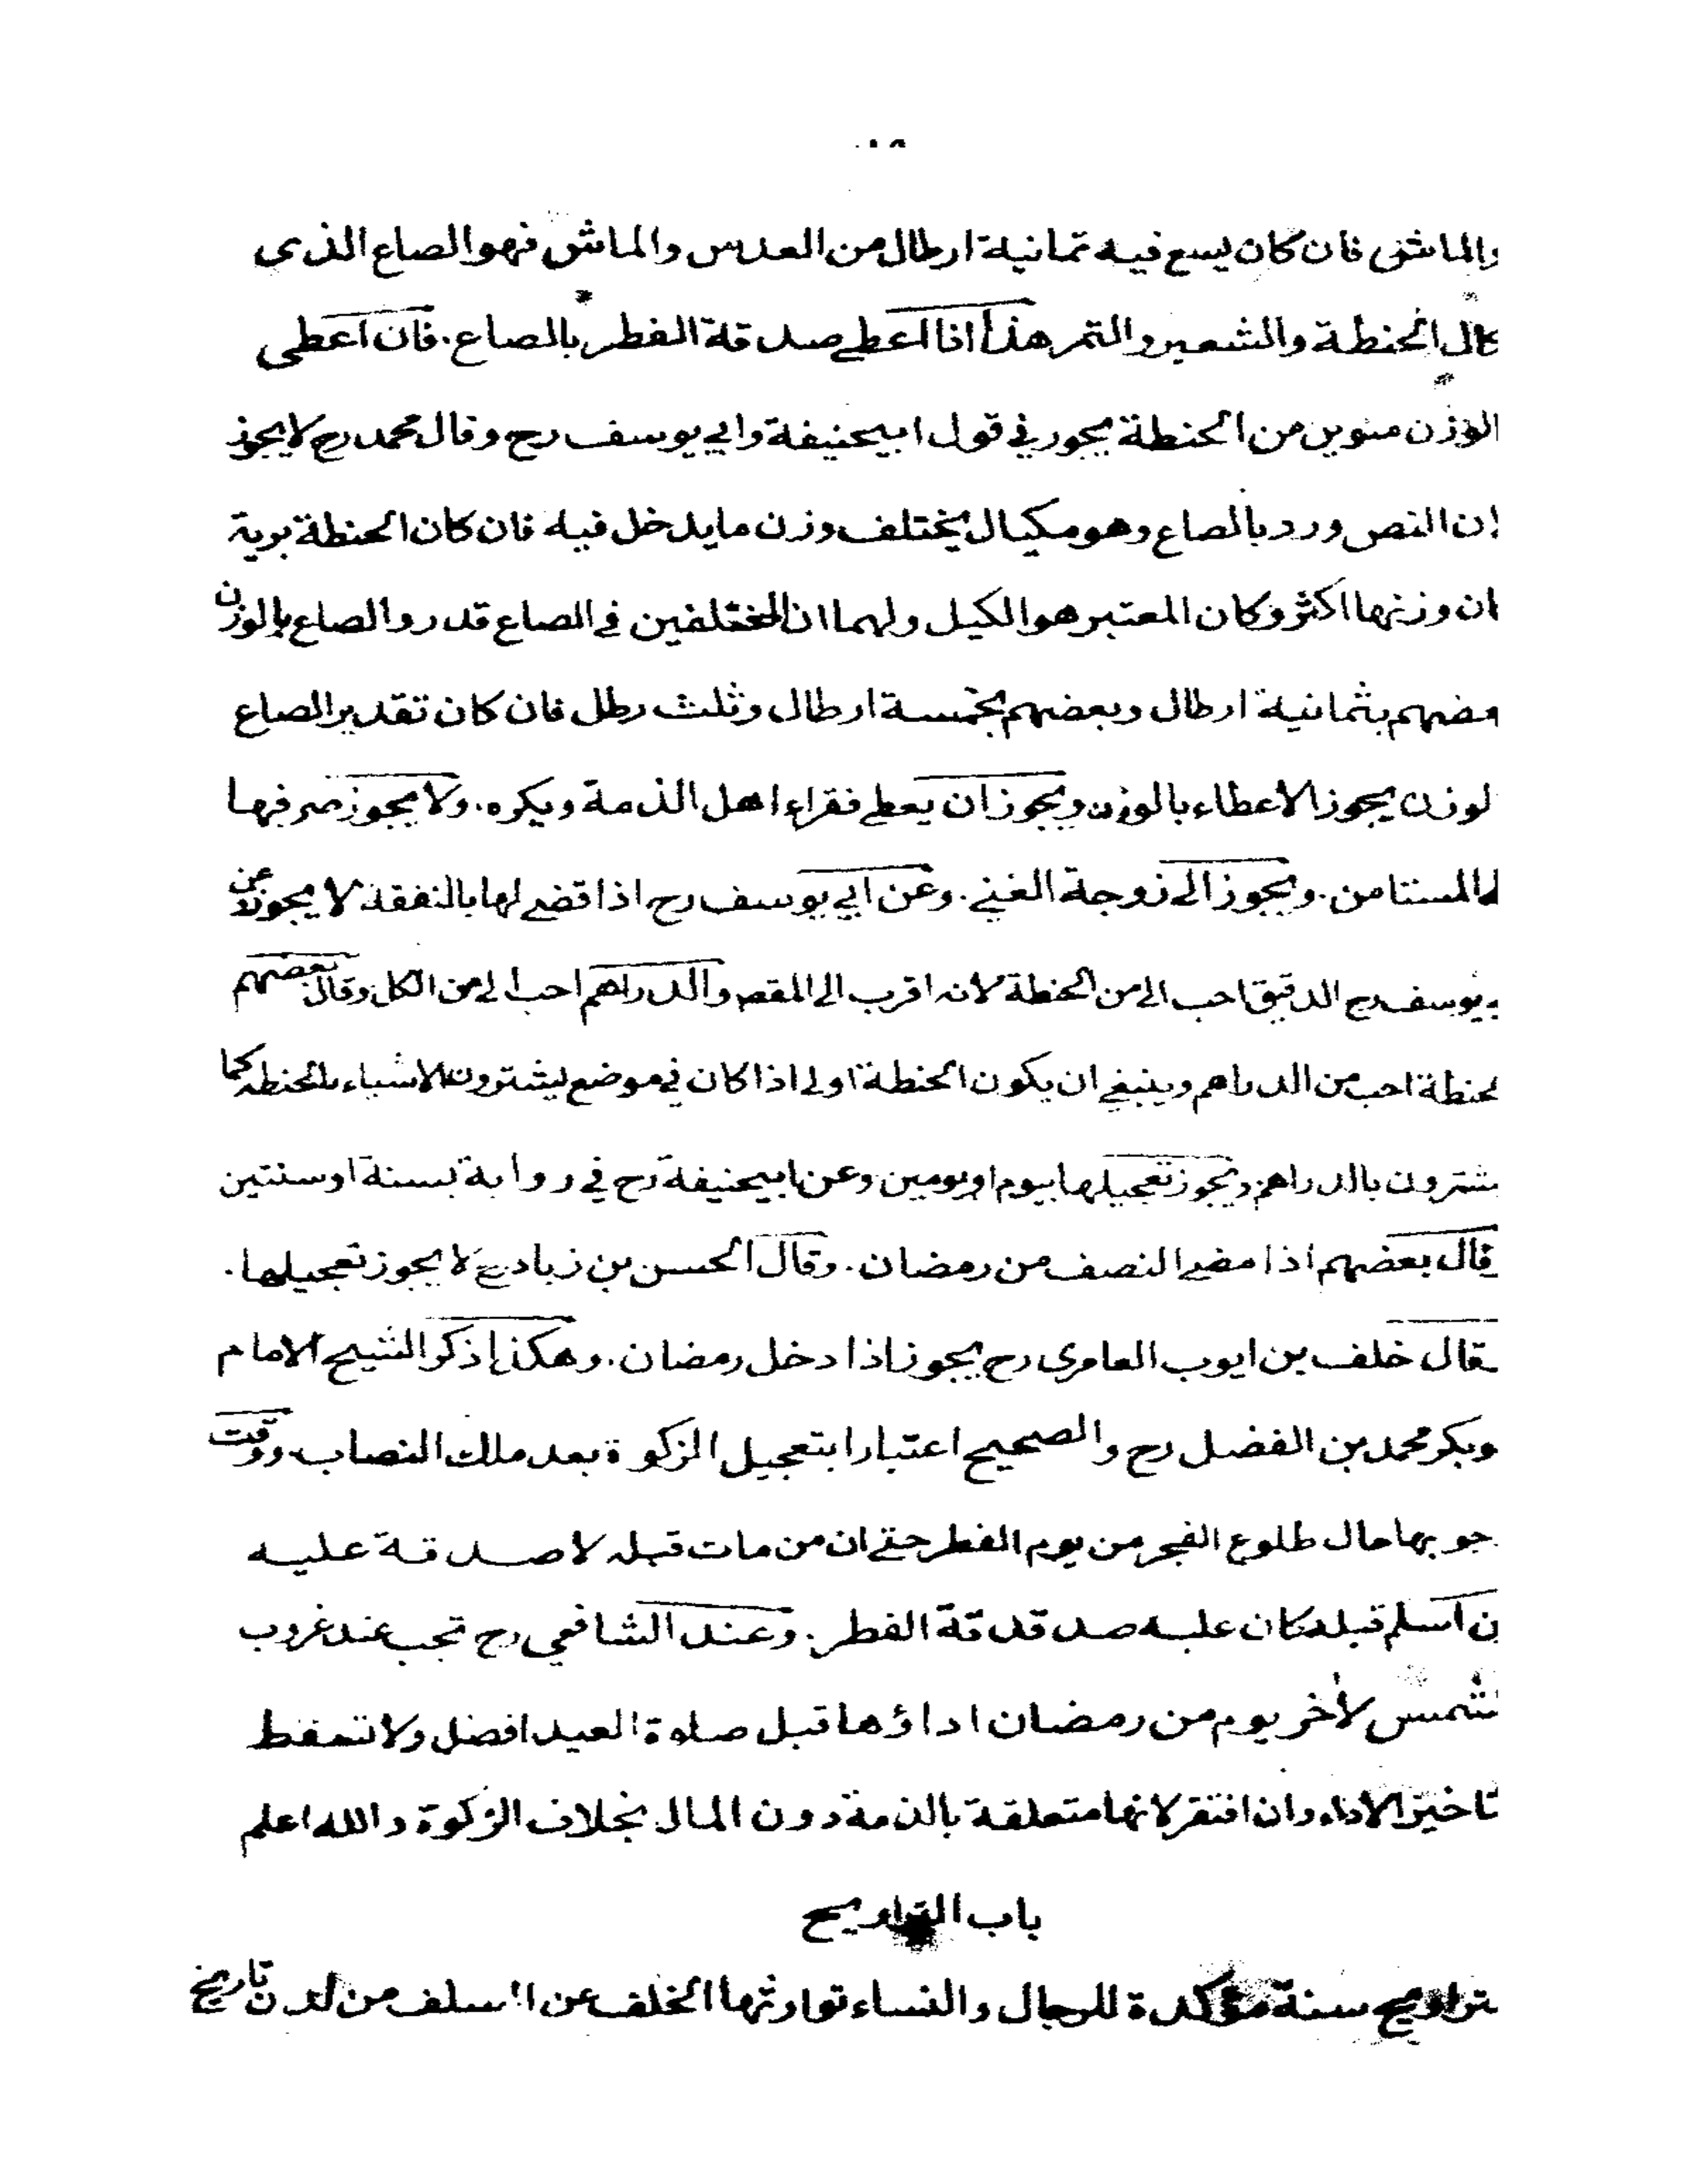 والماش فان كان يسع فيه ثمانية ارطال من العدس والماش فهو الصاع الذى
كال الحنطة والشعير والتمر هذا اذا اعطى صدقة الفطر بالصاع. فان اعطى
الوزن منوين من الحنطة يجوز في قول ابيحنيفة وابي يوسف رح وقال محمد رح لا يجوز
ان النص ورد بالصاع وهو مكيال يختلف وزن ما يدخل فيه فان كان الحنطة برية
ان وزنها اكثر وكان المعتبر هو الكيل ولهما ان المختلفين في الصاع قدروا الصاع بالوزن
عضهم بثمانية ارطال وبعضهم بخمسة ارطال وثلث رطل فان كان تقدير الصاع
لوزن يجوز الاعطاء بالوزن ويجوز ان يعطى فقراء اهل الذمة ويكره. ولا يجوز صرفها
المستامن. ويجوز الى زوجة الغني. وعن ابي يوسف رح اذا قضى لها بالنفقة لا يجوز وعن
بي يوسف رح الدقيق احب الى من الحنطة لانه اقرب الى المقصد والدراهم احب الى من الكل وقال بعضهم
لحنطة احب من الدراهم وينبغي ان يكون الحنطة اولى اذا كان في موضع يشترون الاشياء بالحنطة كما
شترون بالدراهم ويجوز تعجيلها بيوم او يومين وعن ابيحنيفة رح في رواية بسنة او سنتين
قال بعضهم اذا مضى النصف من رمضان. وقال الحسن بن زياد رح لا يجوز تعجيلها.
قال خلف بن ايوب العامرى رح يجوز اذا دخل رمضان. وهكذا ذكر الشيخ الامام
وبكر محمد بن الفضل رح والصحيح اعتبارا بتعجيل الزكوة بعد ملك النصاب. ووقت
جوبها حال طلوع الفجر من يوم الفطر حتى ان من مات قبله لا صدقة عليه
ن اسلم قبله كان عليه صدقة الفطر. وعند الشافعي رح تجب عند غروب
شمس لآخر يوم من رمضان اداؤها قبل صلوة العيد افضل ولا تسقط
تاخير الاداء وان افتقر لانها متعلقة بالذمة دون المال بخلاف الزكوة والله اعلم
باب التراويح
تراويح سنة مؤكدة للرجال والنساء توارثها الخلف عن السلف من لدن تاريخ